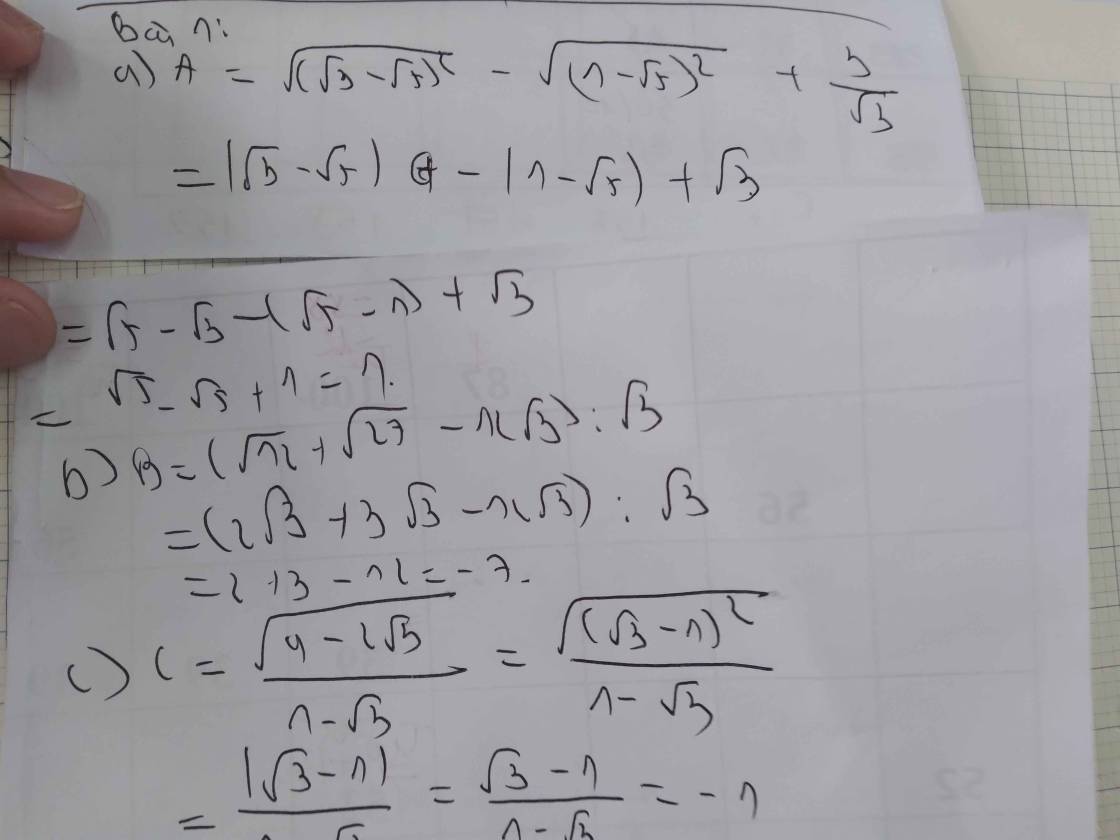 Bài 1:
a) A = √(√3 - √5)² - √(1 - √5)² + 3/√3
= |√3 - √5| - |1 - √5| + √3
= √5 - √3 - (√5 - 1) + √3
= √5 - √5 + 1 = 1.
b) B = (√12 + √27 - 12√3) : √3
= (2√3 + 3√3 - 12√3) : √3
= 2 + 3 - 12 = -7.
c) C = √(4 - 2√3)/(1 - √3) = √(√3 - 1)²/(1 - √3)
= |√3 - 1|/(1 - √3) = (√3 - 1)/(1 - √3) = -1